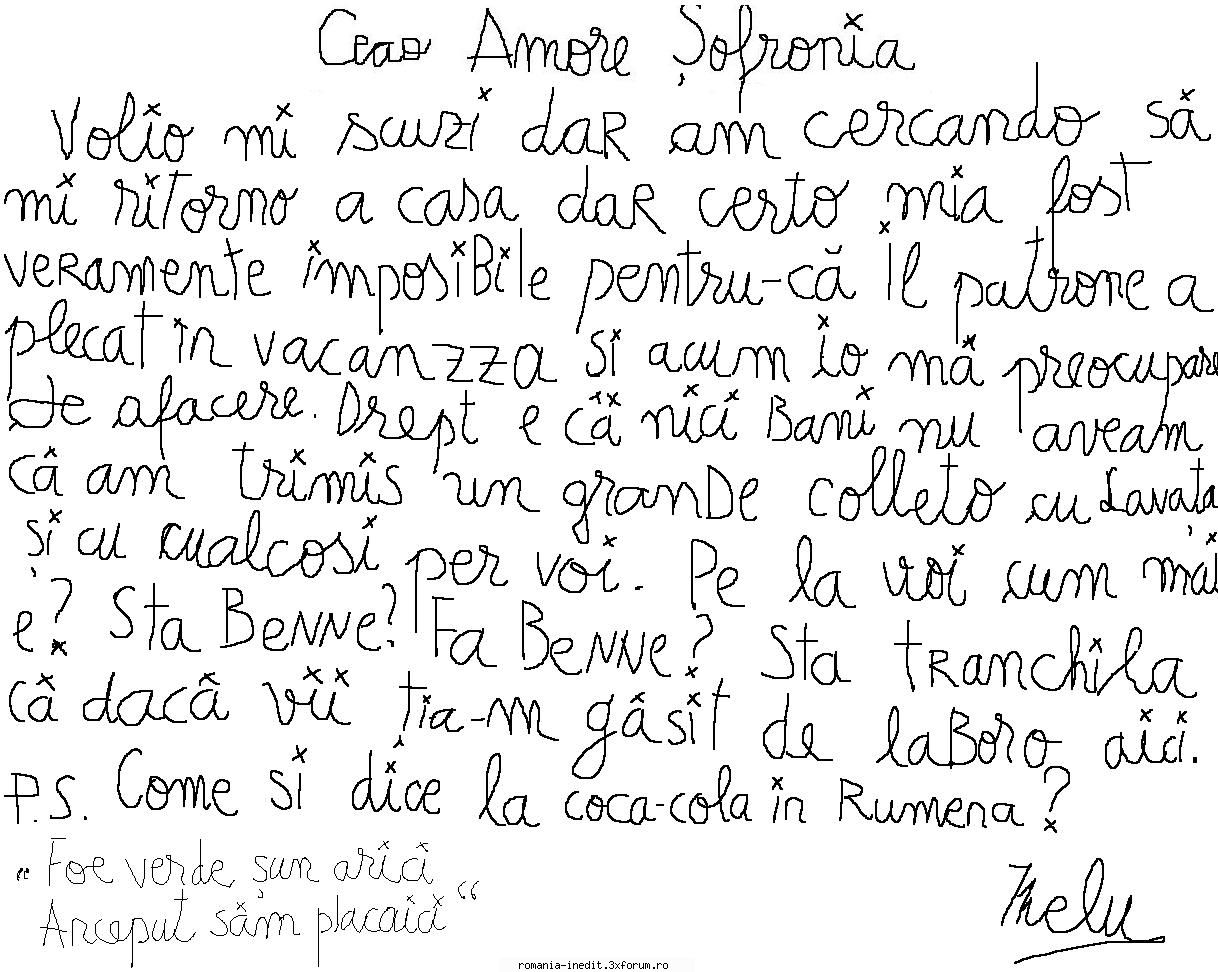 Ceao Amore Șofronia
Volio mi scuzi daR am cercando să
mi ritorno a casa daR certo mia fost
veRamente imposiBile pentru-că il patrone a
plecat in vacanzza si acum io mă preocupare
de afacere. Drept e că nici Bani nu aveam
că am trimis un granDe colleto cu Lavata
și cu cualcosi per voi. Pe la voi cum mai
e? Sta BeNNe? Fa BeNNe? Sta tRanchila
că dacă vii tia-m găsit de laBoro aici.
P.S. Come si dice la coca-cola in Rumena?
„Foe verde șun arici
Anceput săm placaici“
Nelu
romania-inedit.3xforum.ro